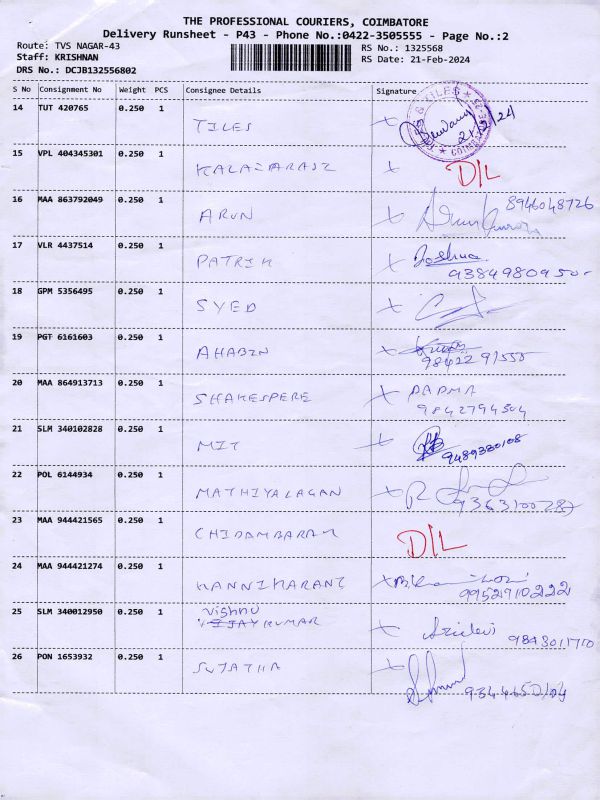 THE PROFESSIONAL COURIERS, COIMBATORE
Delivery Runsheet - P43 - Phone No.:0422-3505555 - Page No.:2
Route: TVS NAGAR-43
RS No.: 1325568
Staff: KRISHNAN
RS Date: 21-Feb-2024
DRS No.: DCJB132556802
S No Consignment No Weight PCS Consignee Details Signature
14 TUT 420765 0.250 1
TILES
21/2/24
15 VPL 404345301 0.250 1
KALAIARASI
D/L
16 MAA 863792049 0.250 1
8946048726
ARUN
17 VLR 4437514 0.250 1
Joshua
PATRIK
9384980950
18 GPM 5356495 0.250 1
SYED
19 PGT 6161603 0.250 1
AHABIN
9842291555
20 MAA 864913713 0.250 1
PADMA
SHAKESPERE
9842794504
21 SLM 340102828 0.250 1
MIT
9489380108
22 POL 6144934 0.250 1
MATHIYALAGAN
23 MAA 944421565 0.250 1
CHIDAMBARAM
D/L
24 MAA 944421274 0.250 1
KANNIKARANI
9952910222
25 SLM 340012950 0.250 1
Vishnu
VIJAYKUMAR
Sridevi
9843011710
26 PON 1653932 0.250 1
SUJATHA